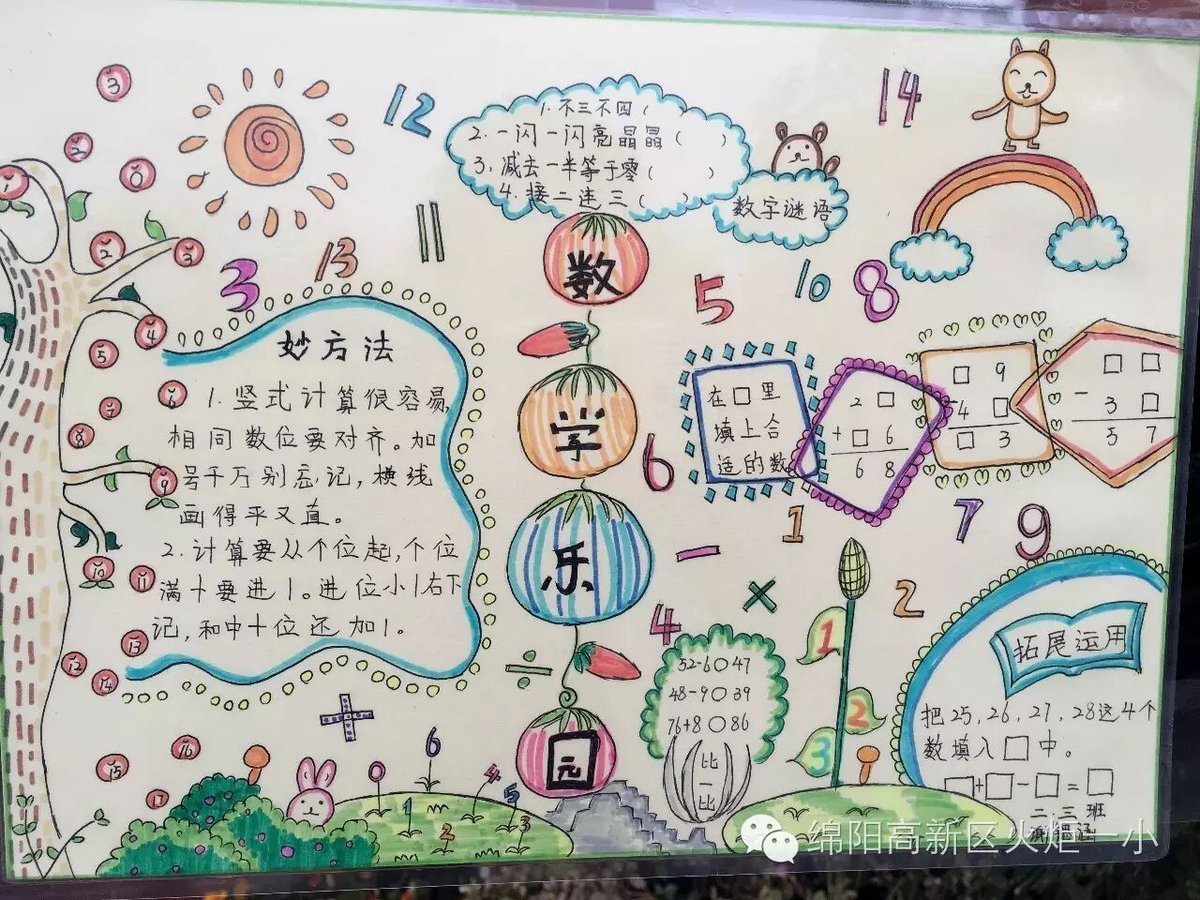 数学乐园
1. 不三不四( )
2. 一闪一闪亮晶晶( )
3. 减去一半等于零( )
4. 接二连三( )
数字谜语
妙方法
1. 竖式计算很容易,
相同数位要对齐。加
号千万别忘记,横线
画得平又直。
2. 计算要从个位起,个位
满十要进1。进位小1右下
记,和中十位还加1。
在□里
填上合
适的数
2□
+□6
68
□9
-4□
□3
□□
-3□
57
52-6○47
48-9○39
76+8○86
比一比
拓展运用
把25,26,27,28这4个
数填入□中。
□+□-□=□
二.三班
12
14
11
13
3
5
10
8
6
1
7
9
-
×
4
2
÷
+
1
2
3
0
1
6
2
4
5
3
3
2
0
1
2
3
4
5
6
7
8
9
10
11
12
13
14
15
16
17
绵阳高新区火炬一小